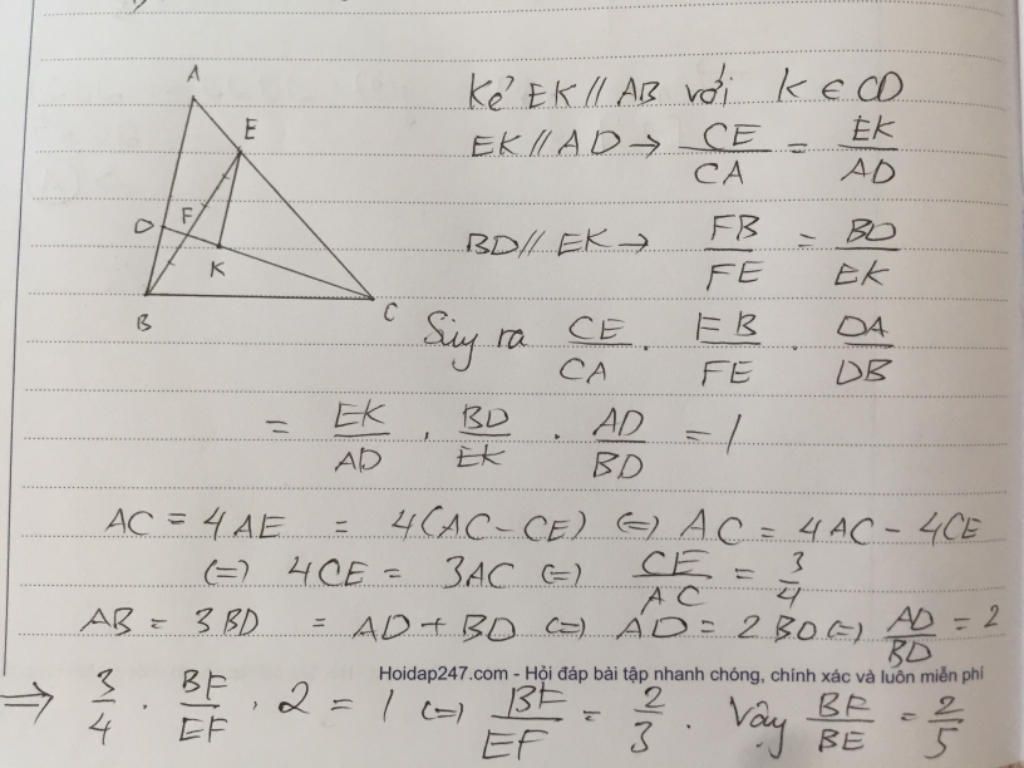 A
E
D
F
K
B
C
Kẻ EK // AB với K ∈ CD
EK // AD → CE/CA = EK/AD
BD // EK → FB/FE = BD/EK
Suy ra CE/CA . FB/FE . DA/DB
= EK/AD . BD/EK . AD/BD = 1
AC = 4AE = 4(AC - CE) (=) AC = 4AC - 4CE
(=) 4CE = 3AC (=) CE/AC = 3/4
AB = 3BD = AD + BD (=) AD = 2BD (=) AD/BD = 2
Hoidap247.com - Hỏi đáp bài tập nhanh chóng, chính xác và luôn miễn phí
=> 3/4 . BF/EF . 2 = 1 (=) BF/EF = 2/3 . Vậy BF/BE = 2/5